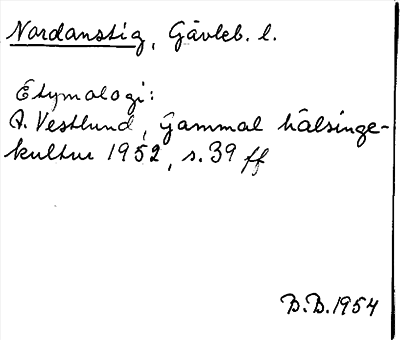 Nordanstig, Gävleb. l.
Etymologi:
A. Vestlund, Gammal hälsinge-
kultur 1952, s. 39 ff
B.B. 1954